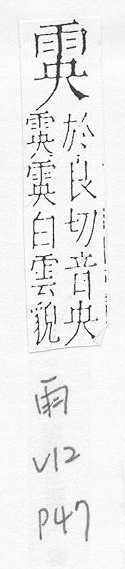 霙
於良切音央
霙霙白雲貌
雨
V12
P47